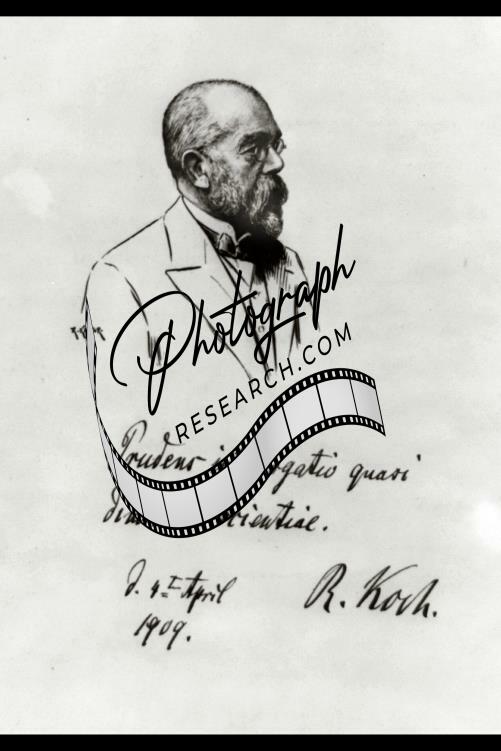 Photograph
RESEARCH.COM
Prudens
gatio quasi
scientiae.
d. 4t April
1909.
R. Koch.